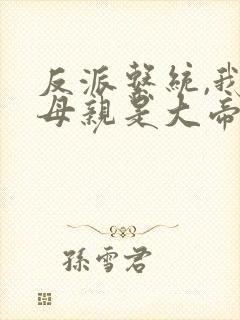 反派繫統,我
母親是大帝
孫雪君